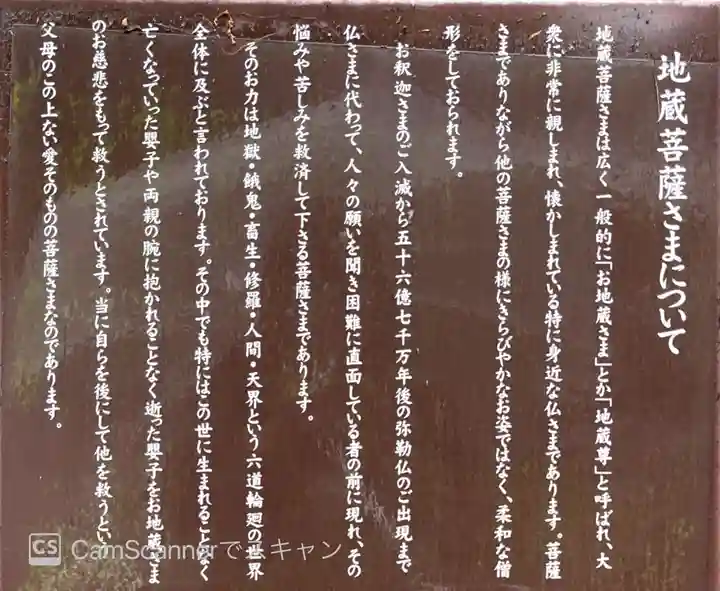 地蔵菩薩さまについて
地蔵菩薩さまは広く一般的に「お地蔵さま」とか「地蔵尊」と呼ばれ、大
衆に非常に親しまれ、懐かしまれている特に身近な仏さまであります。菩薩
さまでありながら他の菩薩さまの様にきらびやかなお姿ではなく、柔和な僧
形をしておられます。
お釈迦さまのご入滅から五十六億七千万年後の弥勒仏のご出現まで
仏さまに代わって、人々の願いを聞き困難に直面している者の前に現れ、その
悩みや苦しみを救済して下さる菩薩さまであります。
そのお力は地獄・餓鬼・畜生・修羅・人間・天界という六道輪廻の世界
全体に及ぶと言われております。その中でも特にはこの世に生まれることなく
亡くなっていった嬰子や両親の腕に抱かれることなく逝った嬰子をお地蔵さま
のお慈悲をもって救うとされています。当に自らを後にして他を救うとい
父母のこの上ない愛そのものの菩薩さまなのであります。
CS CamScannerでスキャン